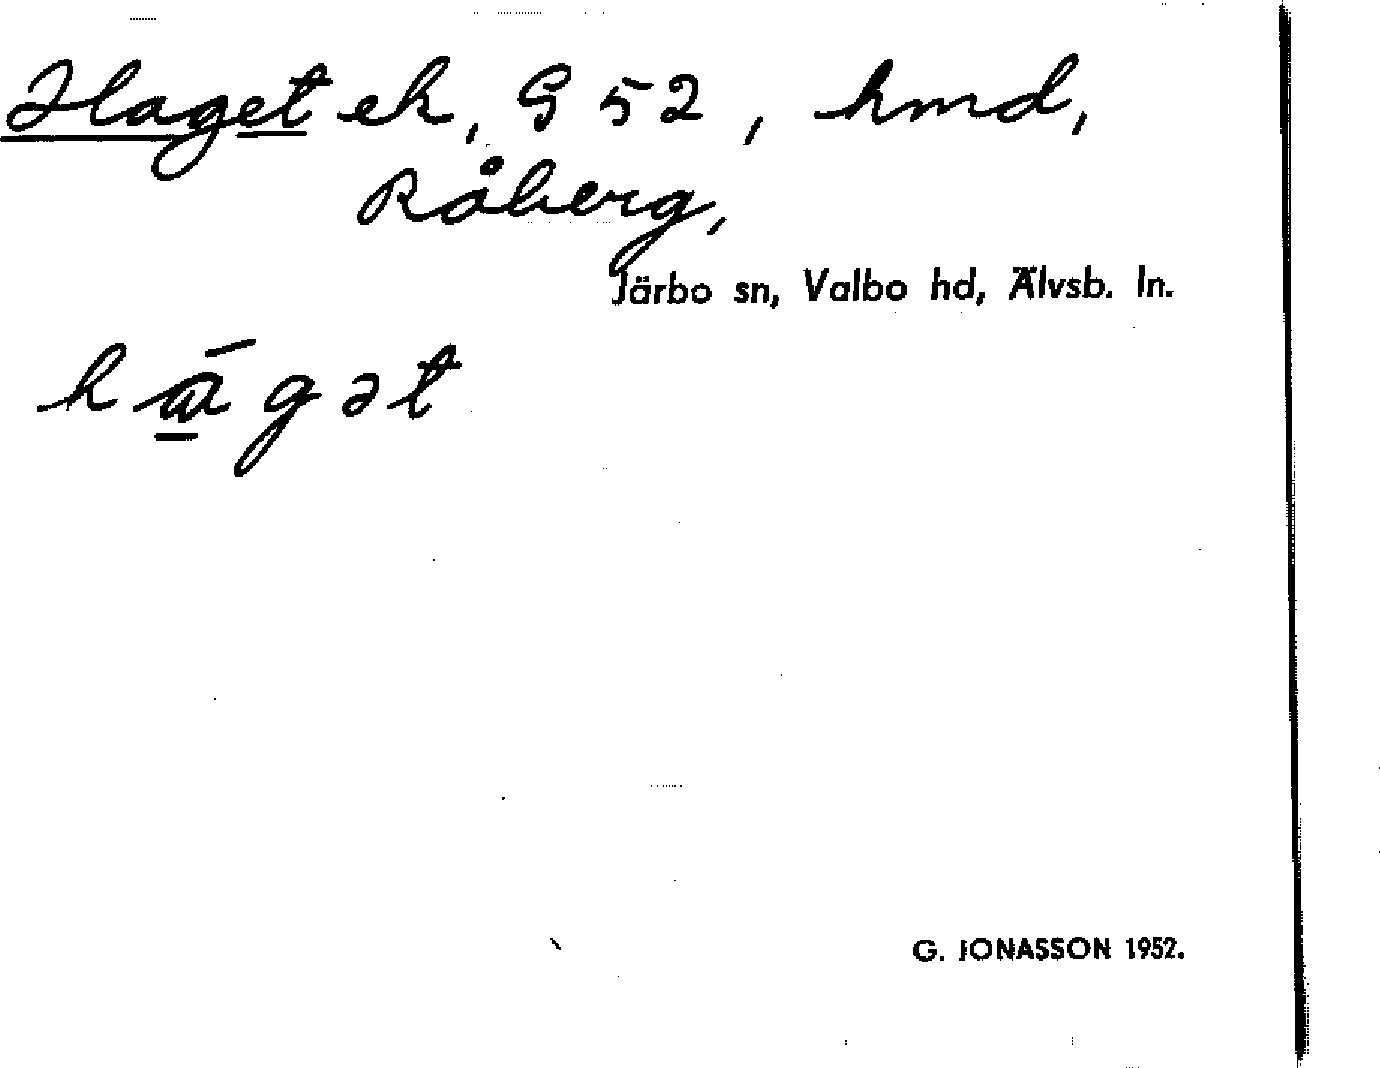 Haget ek, G 52, hmd,
Råberg,
Järbo sn, Valbo hd, Älvsb. ln.
hāgət
G. JONASSON 1952.